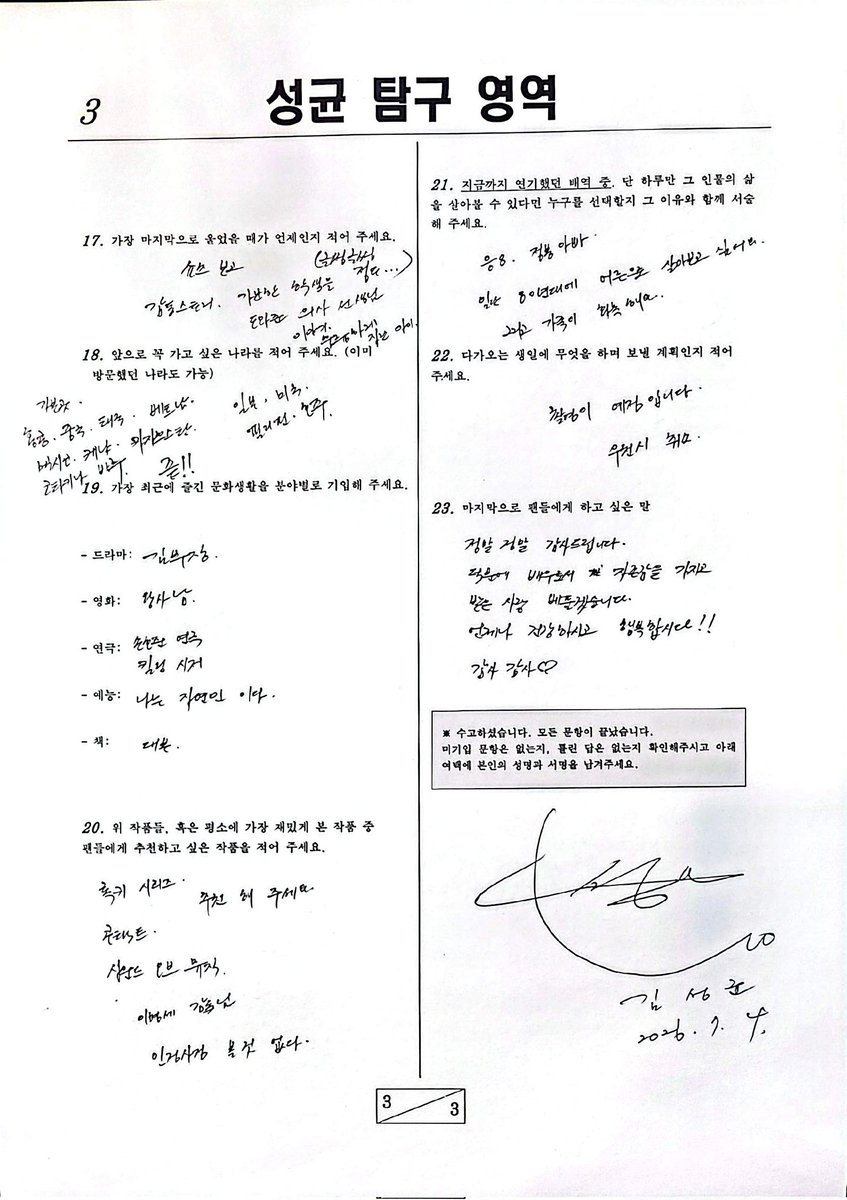 3
성균 탐구 영역
17. 가장 마지막으로 울었을 때가 언제인지 적어 주세요.
쇼츠 보고 (글썽글썽 정도...)
감동스토리. 가난한 학생을
도와준 의사 선생님
이야기.
18. 앞으로 꼭 가고 싶은 나라를 적어 주세요. (이미
방문했던 나라도 가능)
가본곳.
홍콩. 중국. 태국. 베트남.
멕시코. 케냐. 파키스탄.
코타키나 발루. 끝!!
일본, 미국.
필리핀. 호주.
19. 가장 최근에 즐긴 문화생활을 분야별로 기입해 주세요.
- 드라마: 김부장.
- 영화: 왕사남.
- 연극: 손순환 연극
킬링 시저
- 예능: 나는 자연인 이다.
- 책: 대본.
20. 위 작품들, 혹은 평소에 가장 재밌게 본 작품 중
팬들에게 추천하고 싶은 작품을 적어 주세요.
록키 시리즈. 추천 해 주세요
콘택트.
사운드 오브 뮤직.
이명세 감독님
인정사정 볼것 없다.
21. 지금까지 연기했던 배역 중, 단 하루만 그 인물의 삶
을 살아볼 수 있다면 누구를 선택할지 그 이유와 함께 서술
해 주세요.
응8. 정봉아빠.
일단 80년대에 어른으로 살아보고 싶어요.
그리고 가족이 화목해요.
22. 다가오는 생일에 무엇을 하며 보낼 계획인지 적어
주세요.
촬영이 예정입니다.
우천시 취소.
23. 마지막으로 팬들에게 하고 싶은 말
정말 정말 감사드립니다.
덕분에 배우로서 자존감을 가지고
받은 사랑 베풀겠습니다.
언제나 건강하시고 행복합시다!!
감사 감사♡
※ 수고하셨습니다. 모든 문항이 끝났습니다.
미기입 문항은 없는지, 틀린 답은 없는지 확인해주시고 아래
여백에 본인의 성명과 서명을 남겨주세요.
김 성균
2026. 7. 4.
3
3